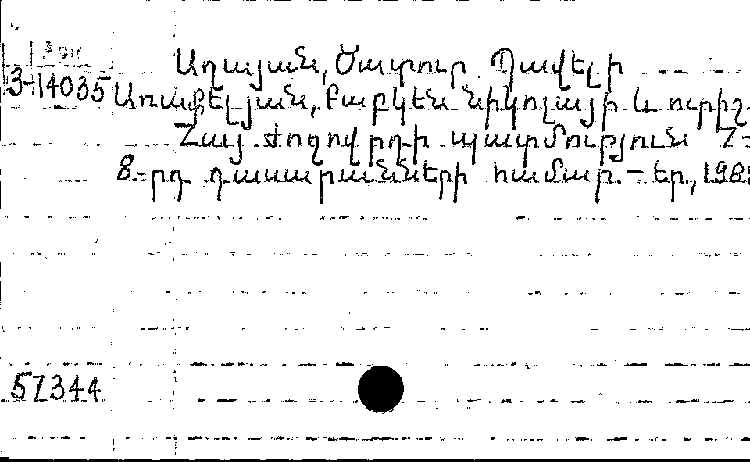 Աղայան, Ծատուր Պավելի
3-14035 Առաքելյան, Բաբկեն Նիկոլայի և ուրիշ
Հայ ժողովրդի պատմություն 7-
8-րդ դասարանների համար.- Եր., 198
57344